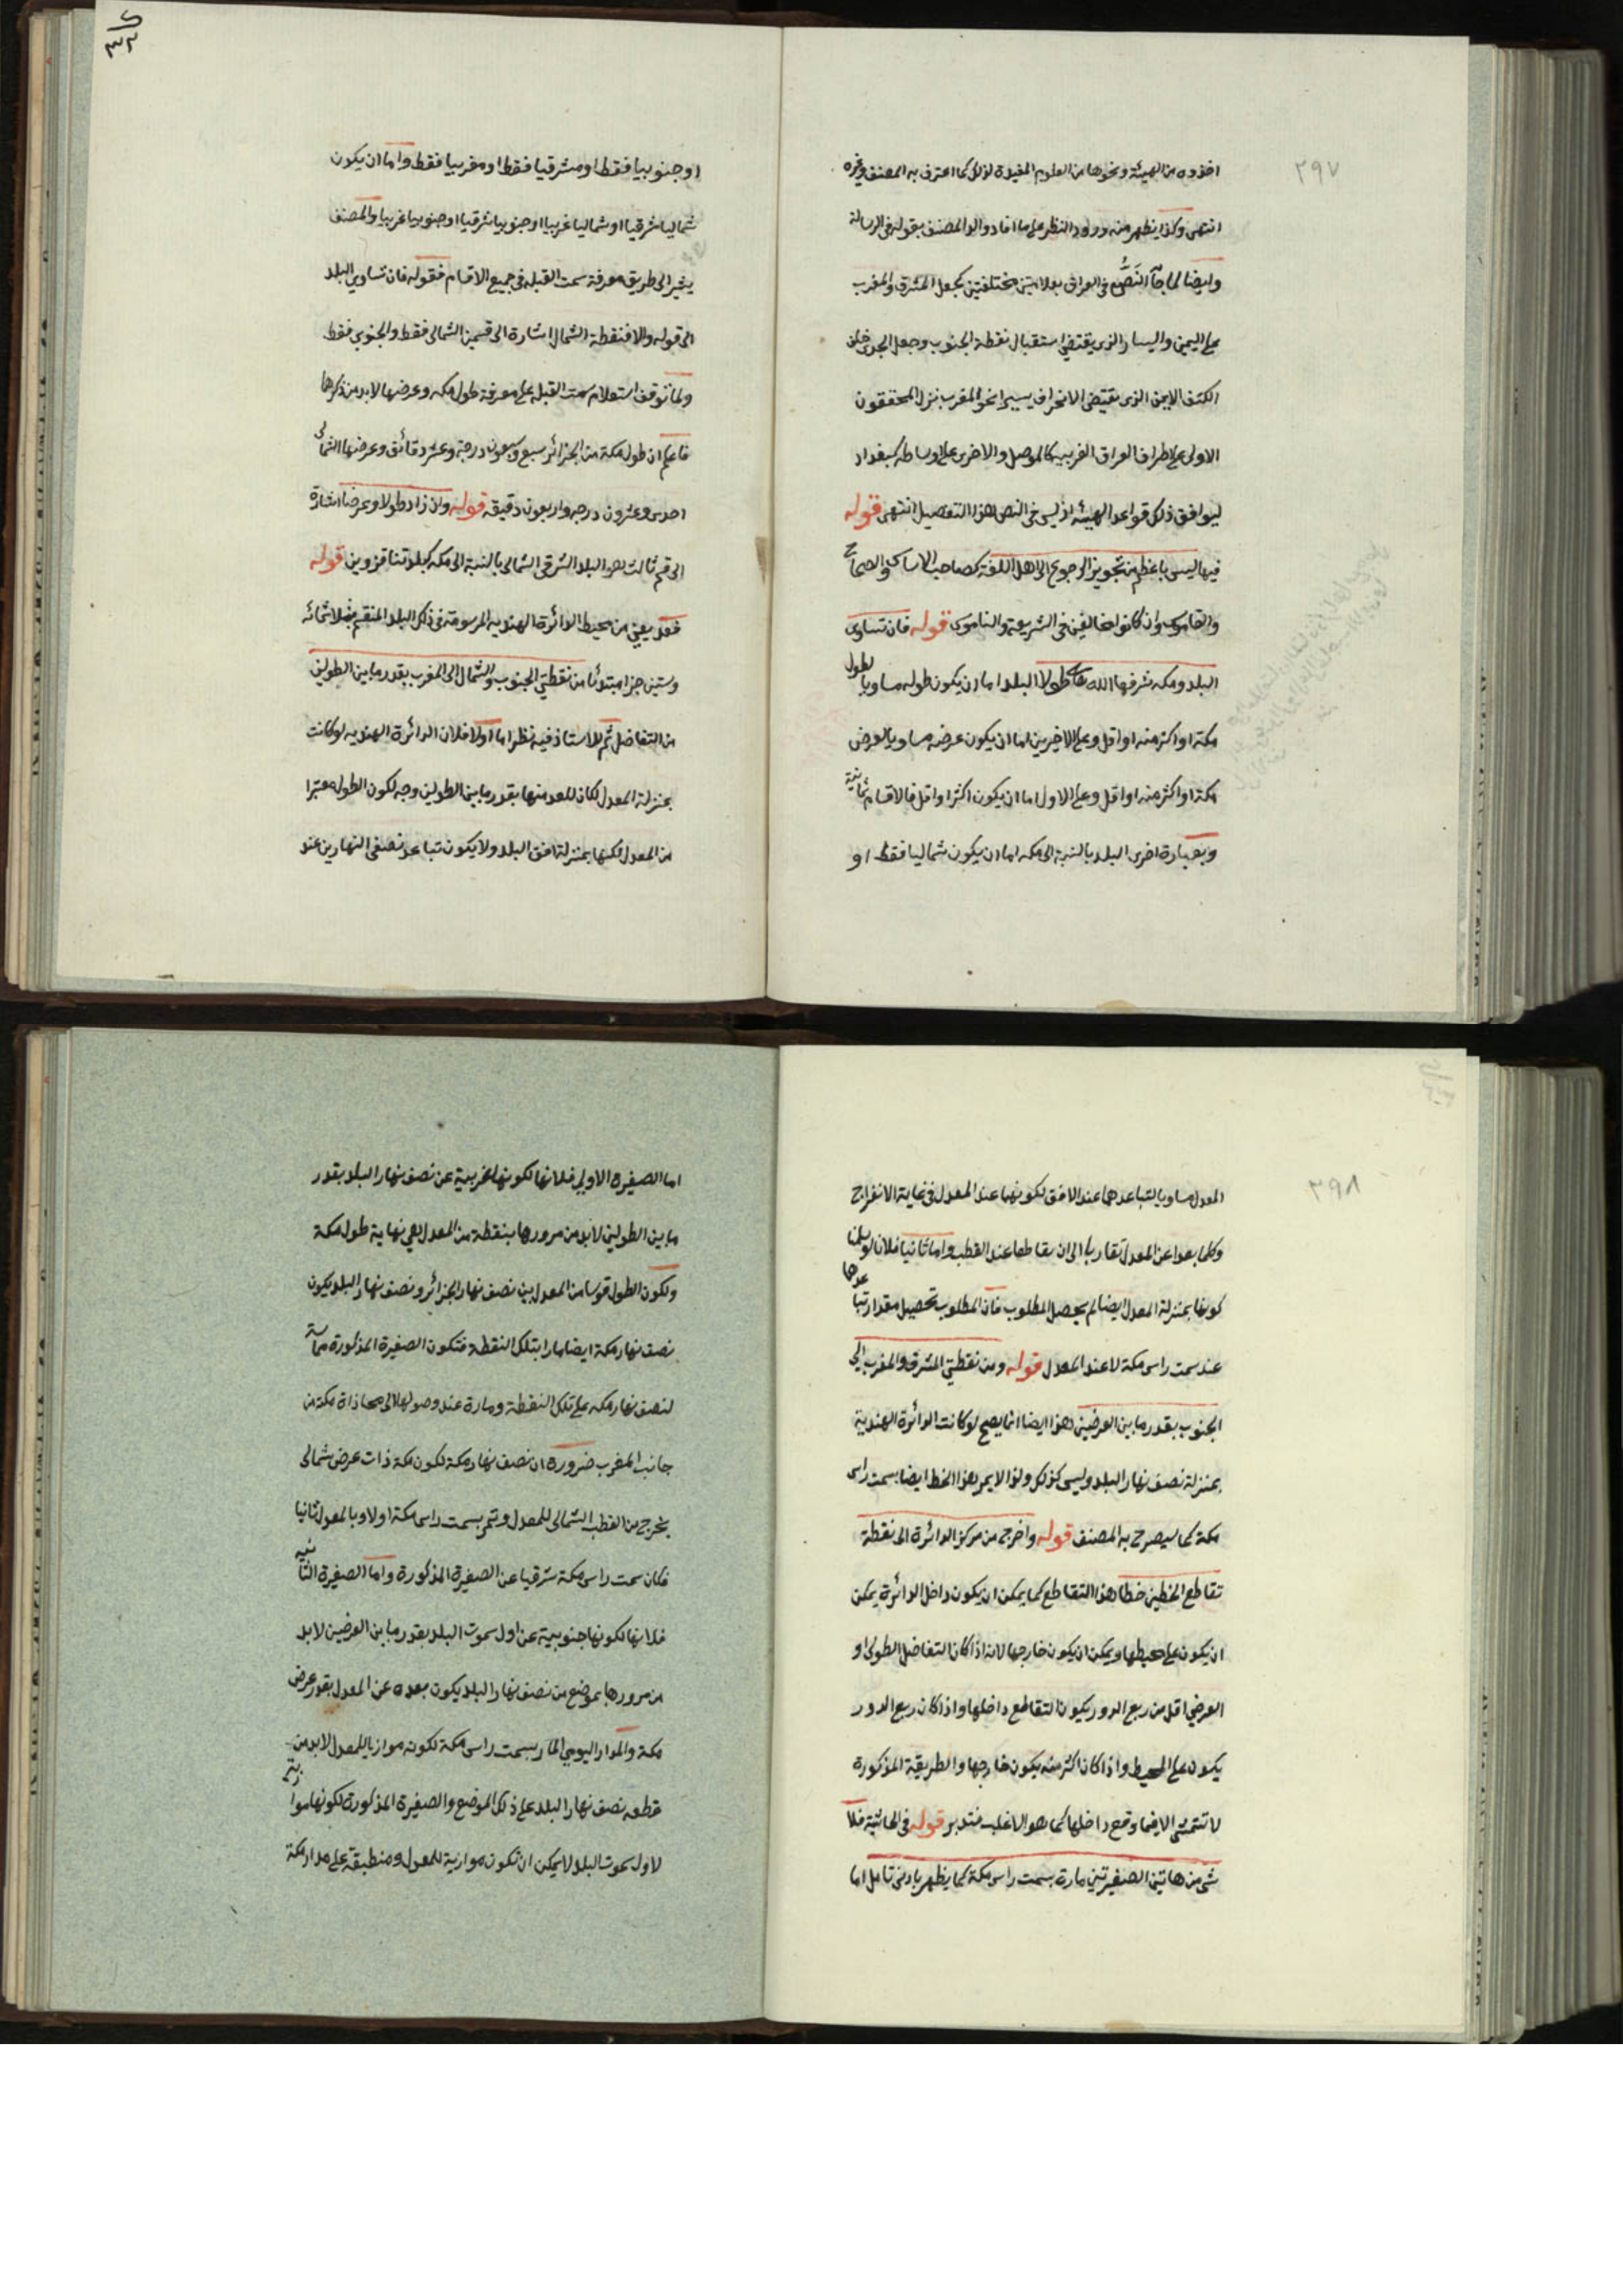 ٣٩٧
اخذوه من الهيئة ونحوها من العلوم المفيدة لذلك كما اعترف به المصنف وغيره
انتهى وكذا يظهر منه ورود النظر على ما افاد والد المصنف بقوله فى الرسالة
وايضا لما جآ النَصُّ فى العراق بعلامتين مختلفتين كجعل المشرق والمغرب
على اليمين واليسار الذى يقتضى استقبال نقطة الجنوب وجعل الجدى خلف
الكتف الايمن الذى يقتضى الانحراف يسيرا نحو المغرب نزل المحققون
الاولى على اطراف العراق الغربيه كالموصل والاخرى على اوساطه كبغداد
ليوافق ذلك قواعد الهيئه اذ ليس فى النص هذا التفصيل انتهى قوله
فيها ليس باعظم من تجويز الرجوع الى اهل اللغة كصاحب الاساس والصحاح
والقاموس وان كانوا مخالفين فى الشريعة والناموس قوله فان تساوى
البلد ومكه شرفها الله تعالى طولا البلد اما ان يكون طوله مساويا لطول
مكة او اكثر منه او اقل وعلى الاخيرين اما ان يكون عرضه مساويا لعرض
مكة او اكثر منه او اقل وعلى الاول اما ان يكون اكثر او اقل فالاقسام ثمانية
وبعبارة اخرى البلد بالنسبة الى مكه اما ان يكون شماليا فقط او
او جنوبيا فقط او مشرقيا فقط او مغربيا فقط واما ان يكون
شماليا شرقيا او شماليا غربيا او جنوبيا شرقيا او جنوبيا غربيا والمصنف
يشير الى طريق معرفة سمت القبله فى جميع الاقسام فقوله فان تساوى البلد
الى قوله والا فنقطة الشمال اشارة الى قسمين الشمالى فقط والجنوبى فقط
ولما توقف استعلام سمت القبله على معرفة طول مكه وعرضها لابد من ذكرها
فاعلم ان طول مكة من الجزائر سبع وسبعون درجة وعشر دقائق وعرضها الشمالى
احدى وعشرون درجه واربعون دقيقه قوله وان زاد طولا وعرضا اشارة
الى قسم ثالث هو البلد الشرقى الشمالى بالنسبة الى مكه كبلدتنا قزوين قوله
فعد يعنى من محيط الدائرة الهندية المرسومة فى ذلك البلد المنقسم بثلاثمائه
وستين جزا مبتدئا من نقطتى الجنوب والشمال الى المغرب بقدر ما بين الطولين
من التفاضل ثم للاستاذ فيه نظر اما اولا فلان الدائرة الهنديه لو كانت
بمنزلة المعدل لكان للعد منها بقدر ما بين الطولين وجه لكون الطول معتبرا
من المعدل لكنها بمنزلة افق البلد ولا يكون تباعد نصفى النهارين عند
٣٩٨
المعدل مساويا لتباعدهما عند الافق لكونهما عند المعدل فى غاية الانفراج
وكلما بعدا عن المعدل تقاربا الى ان يتقاطعا عند القطب واما ثانيا فلانا لو سلمنا
كونها بمنزلة المعدل ايضا لم يحصل المطلوب فان المطلوب تحصيل مقدار تباعدهما
عند سمت راس مكة لا عند المعدل قوله ومن نقطتى المشرق والمغرب الى
الجنوب بقدر ما بين العرضين هذا ايضا انما يصح لو كانت الدائرة الهندية
بمنزلة نصف نهار البلد وليس كذلك ولذا لا يمر هذا الخط ايضا بسمت راس
مكة كما سيصرح به المصنف قوله واخرج من مركز الدائرة الى نقطة
تقاطع الخطين خطا هذا التقاطع كما يمكن ان يكون داخل الدائرة يمكن
ان يكون على محيطها ويمكن ان يكون خارجها لانه اذا كان التفاضل الطولى او
العرضى اقل من ربع الدور يكون التقاطع داخلها واذا كان ربع الدور
يكون على المحيط واذا كان اكثر منه يكون خارجها والطريقة المذكورة
لا تتمشى الا فيما وقع داخلها كما هو الاغلب فتدبر قوله فى الحاشية فلا
شى من هاتين الصغيرتين مارة بسمت راس مكة كما يظهر بادنى تامل اما
اما الصغيرة الاولى فلانها لكونها غربية عن نصف نهار البلد بقدر
ما بين الطولين لابد من مرورها بنقطة من المعدل هى نهاية طول مكة
ولكون الطول قوسا من المعدل بين نصف نهار الجزائر ونصف نهار البلد يكون
نصف نهار مكة ايضا مارا بتلك النقطة فتكون الصغيرة المذكورة مماسة
لنصف نهار مكه على تلك النقطة ومارة عند وصولها الى محاذاة مكة من
جانب المغرب ضرورة ان نصف نهار مكة لكون مكة ذات عرض شمالى
يخرج من القطب الشمالى للمعدل وتمر بسمت راس مكة اولا وبالمعدل ثانيا
فكان سمت راس مكة شرقيا عن الصغيرة المذكورة واما الصغيرة الثانيه
فلانها لكونها جنوبية عن اول سموت البلد بقدر ما بين العرضين لابد
من مرورها بموضع من نصف نهار البلد يكون بعده عن المعدل بقدر عرض
مكة والمدار اليومى المار بسمت راس مكة لكونه موازيا للمعدل لابد من
قطعه نصف نهار البلد على ذلك الموضع والصغيرة المذكورة لكونها موازية
لاول سموت البلد لا يمكن ان تكون موازية للمعدل ومنطبقة على مدار مكة